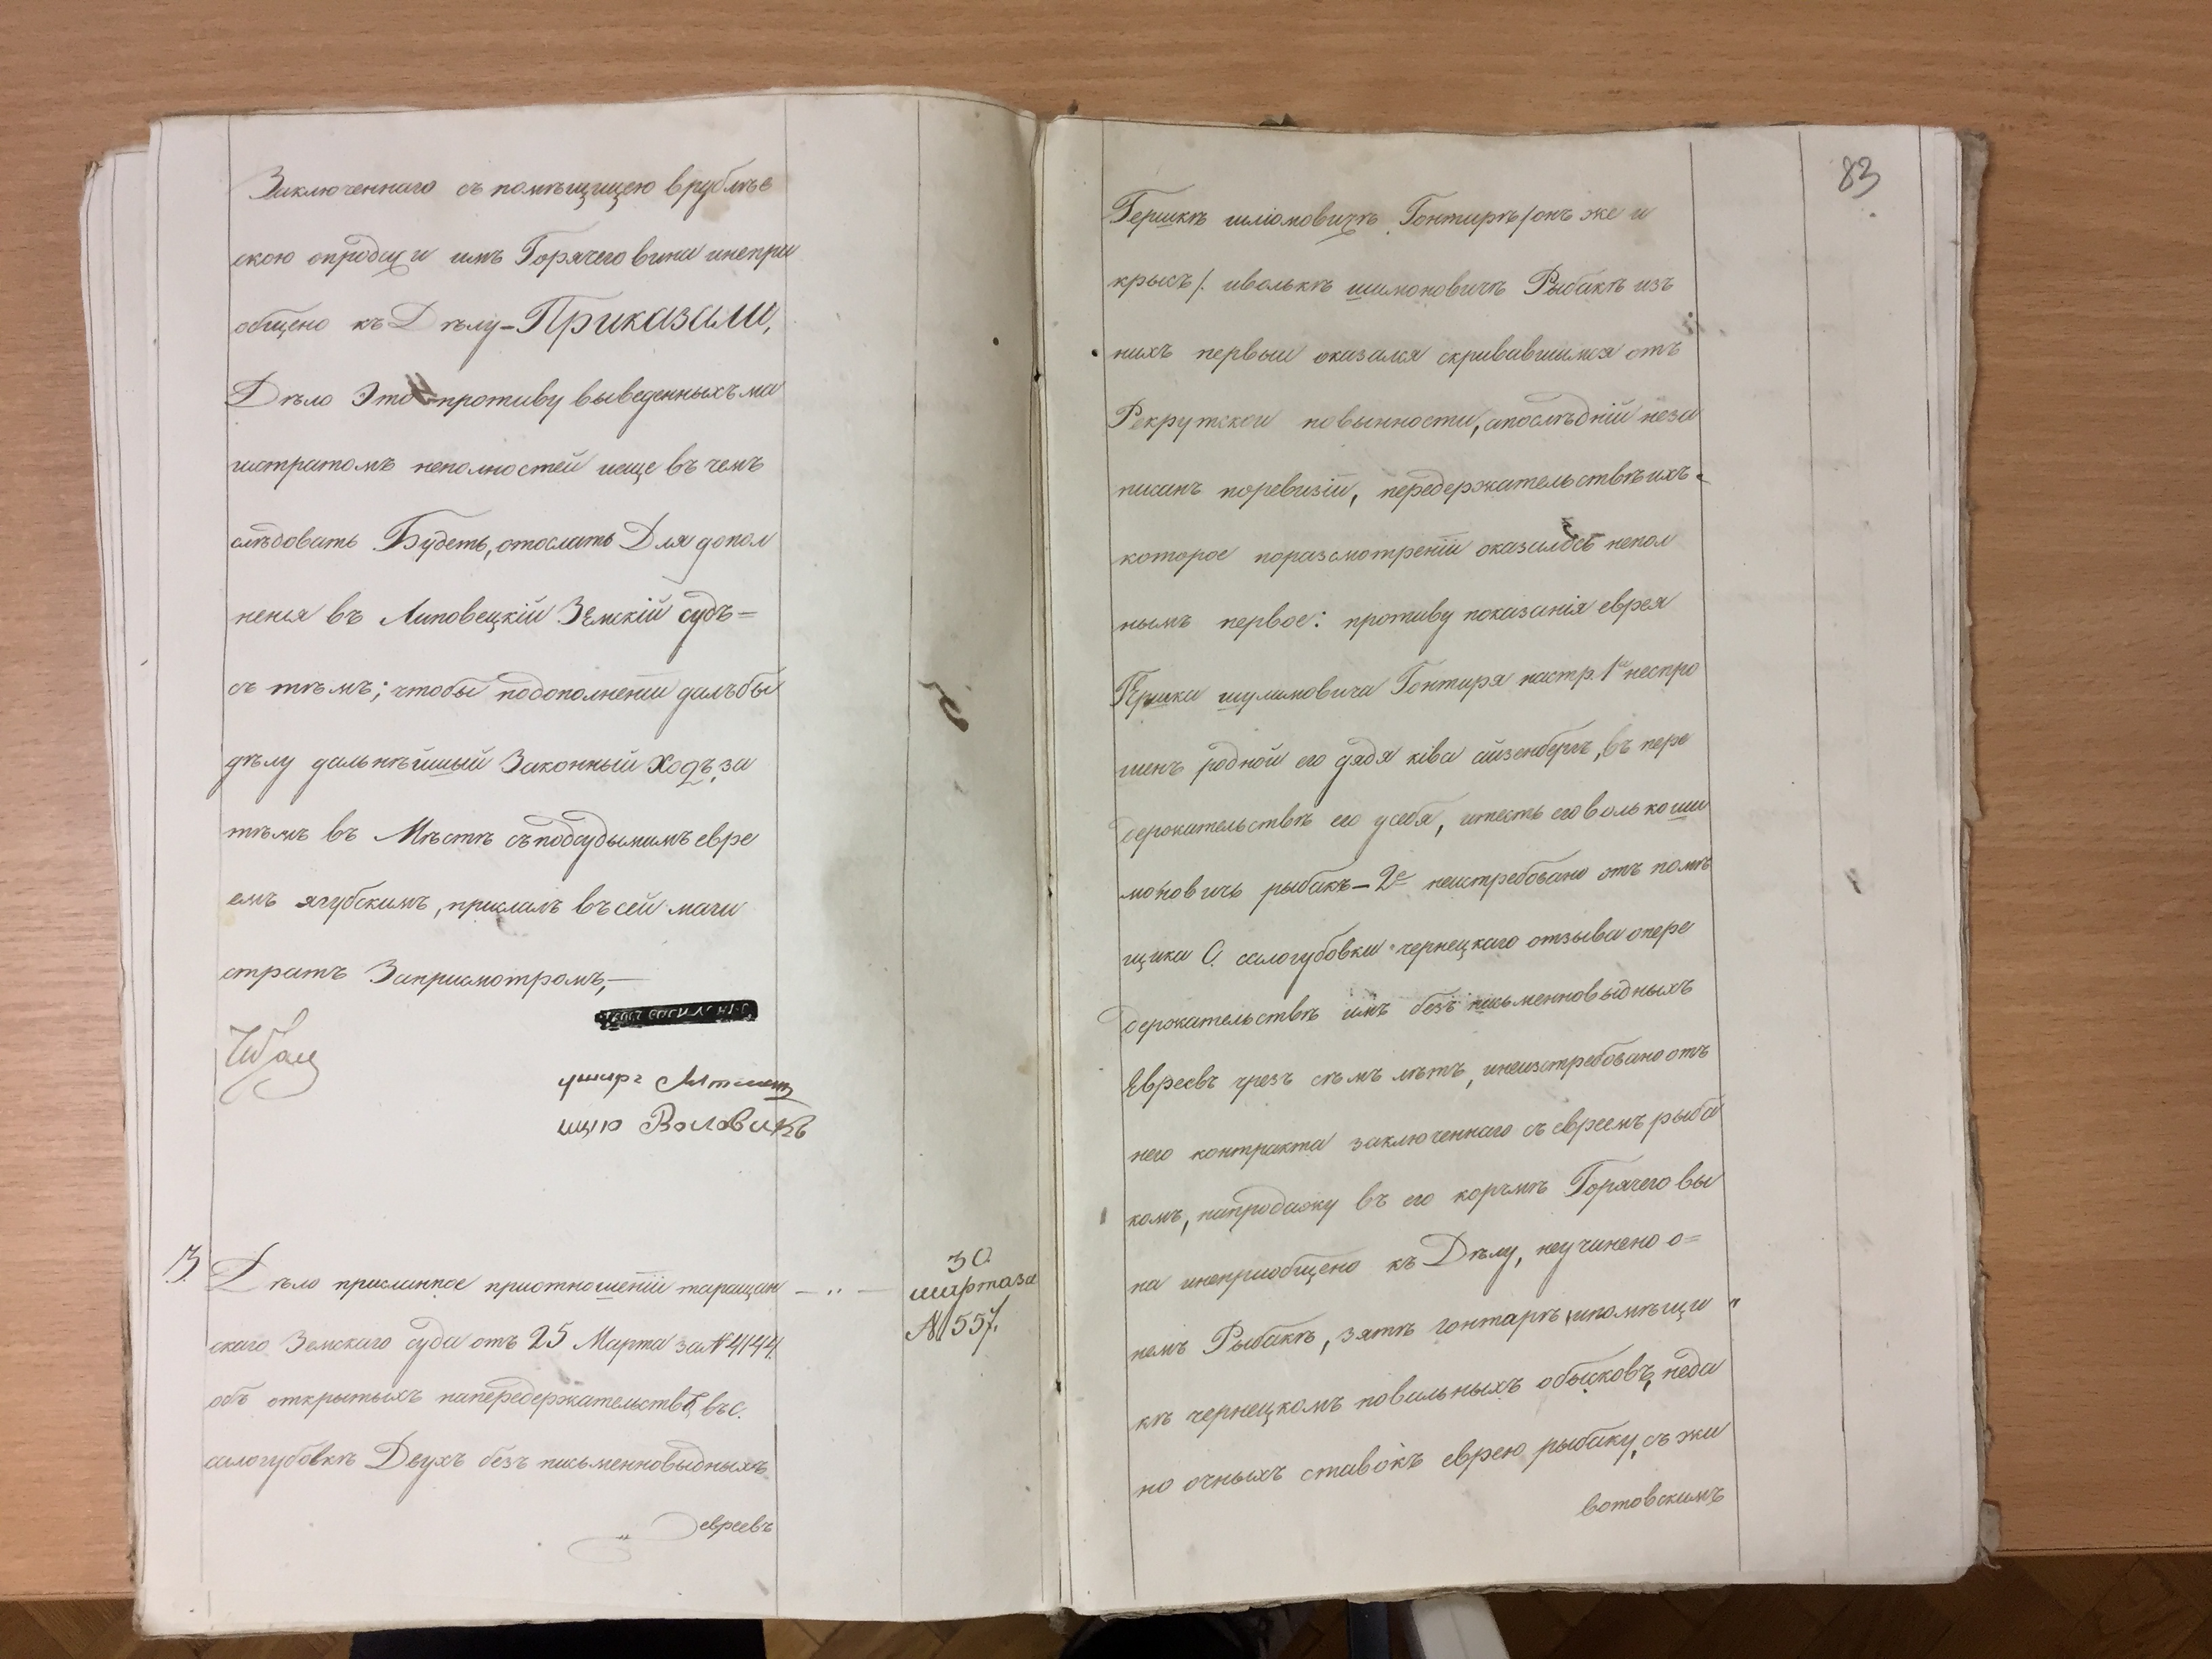 Заключеннаго съ помѣщицею врублѣв
скою опродаж и имъ Горячего вина инепри
общено къ Дѣлу – Приказали,
Дѣло Это противу выведенныхъ ма
гистратомъ неполностей иеще въ чемъ
слѣдовать Будетъ, отослать Для допол
ненія въ Липовецкій Земскій судъ=
съ тѣмъ; чтобы подополненіи далъбы
дѣлу дальнѣйшый Законный Ходъ, за
тѣмъ въ Мѣстѣ съподсудымимъ евре
емъ ягубскимъ, прислалъ въсей маги
стратъ Заприсмотромъ, —
Воловикъ
3. Дѣло присланное приотношеніи таращан — „ —
30.
мартаза
№ 557.
скаго Земскаго суда отъ 25 Марта за № 4144.
объ открытыхъ напередержательствѣ въ с.
салогубовкѣ Двухъ безъ письменновыдныхъ
евреевъ
83
Гершкѣ шліомовичѣ Гонтирѣ /онъ же и
крысъ/. иволькѣ шимоновичѣ Рыбакѣ изъ
нихъ первыи оказался скривавшимся отъ
Рекрутскои повынности, апослѣдній неза
писанъ поревизіи, передержательствѣ ихъ
которое поразсмотреніи оказалось непол
нымъ первое: противу показанія еврея
Гершка шулимовича Гонтира настр. 1й неспро
шенъ родной его дядя ківа айзенбергъ, въ пере
держательствѣ его усебя, итесть его волько ши
моновичъ рыбакъ – 2е неистребовано отъ помѣ
щика С. салогубовки чернецкаго отзыва опере
держательствѣ имъ безъ письменновыдныхъ
Евреевъ чрезъ сѣмъ лѣтъ, инеизстребовано отъ
него контракта заключеннаго съ евреемъ рыба
комъ, напродажу въ его корчмѣ Горячего вы
на инеприобщено къ Дѣлу, неучинено о=
немъ Рыбакѣ, зятѣ гонтарѣ, ипомѣщи
кѣ чернецкомъ повальныхъ обысковъ, неда
но очныхъ ставокъ еврею рыбаку, съ жи
вотовскимъ